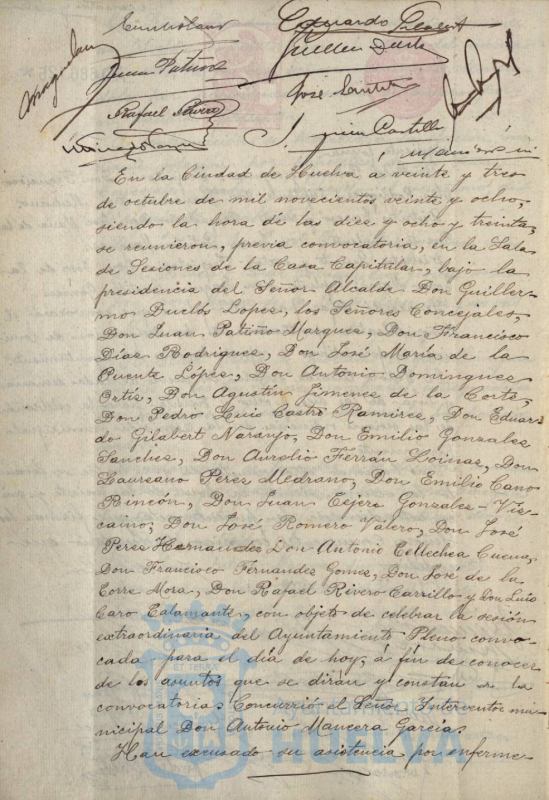 Eduardo Gilabert
Guillen Duclós
Juan Patiño
José Santos
Rafael Rivero
J. Castillo
En la Ciudad de Huelva á veinte y tres
de octubre de mil novecientos veinte y ocho,
siendo la hora de las diez y ocho y treinta,
se reunieron, previa convocatoria, en la Sala
de Sesiones de la Casa Capitular, bajo la
presidencia del Señor Alcalde Don Guiller-
mo Duclós Lopez, los Señores Concejales,
Don Juan Patiño Marquez, Don Francisco
Díaz Rodriguez, Don José María de la
Puente López, Don Antonio Dominguez
Ortís, Don Agustín Jimenez de la Corte,
Don Pedro Luis Castro Ramirez, Don Eduar-
do Gilabert Naranjo, Don Emilio Gonzalez
Sanchez, Don Aurelio Ferrán Loinaz, Don
Laureano Perez Medrano, Don Emilio Cano
Rincón, Don Juan Tejero Gonzalez-Viz-
caino, Don José Romero Valero, Don José
Perez Hernandez Don Antonio Etllechea Cuena,
Don Francisco Fernandez Gomez, Don José de la
Torre Mora, Don Rafael Rivero Carrillo y Don Luis
Caro Talamante, con objeto de celebrar la sesión
extraordinaria del Ayuntamiento Pleno convo-
cada para el día de hoy, á fin de conocer
de los asuntos que se dirán y constán en la
convocatoria. Concurrió el Señor Interventor mu-
nicipal Don Antonio Mancera García.
Han excusado su asistencia por enferme-